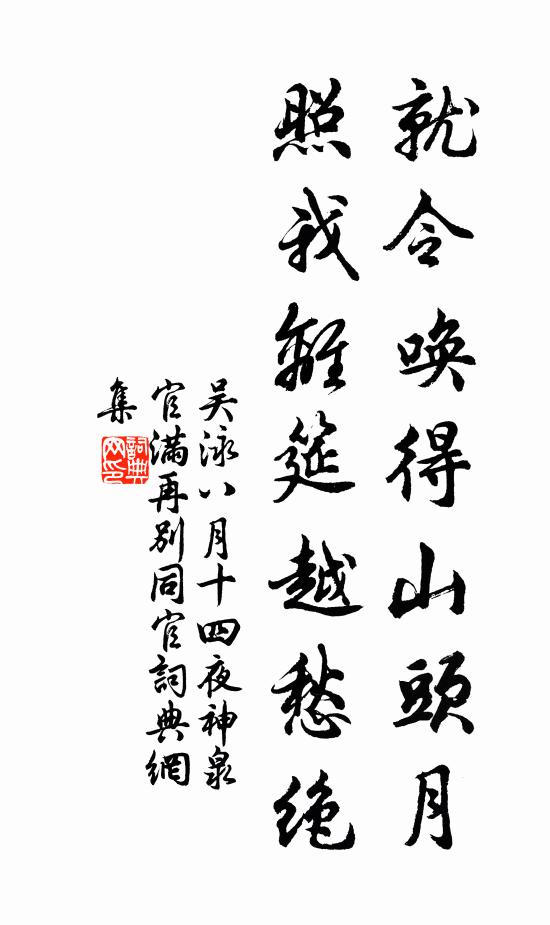 就令唤得山頭月
照我離筵越愁绝
吴泳八月十四夜神泉
官满再别同官詞典網
集
詞典
网印